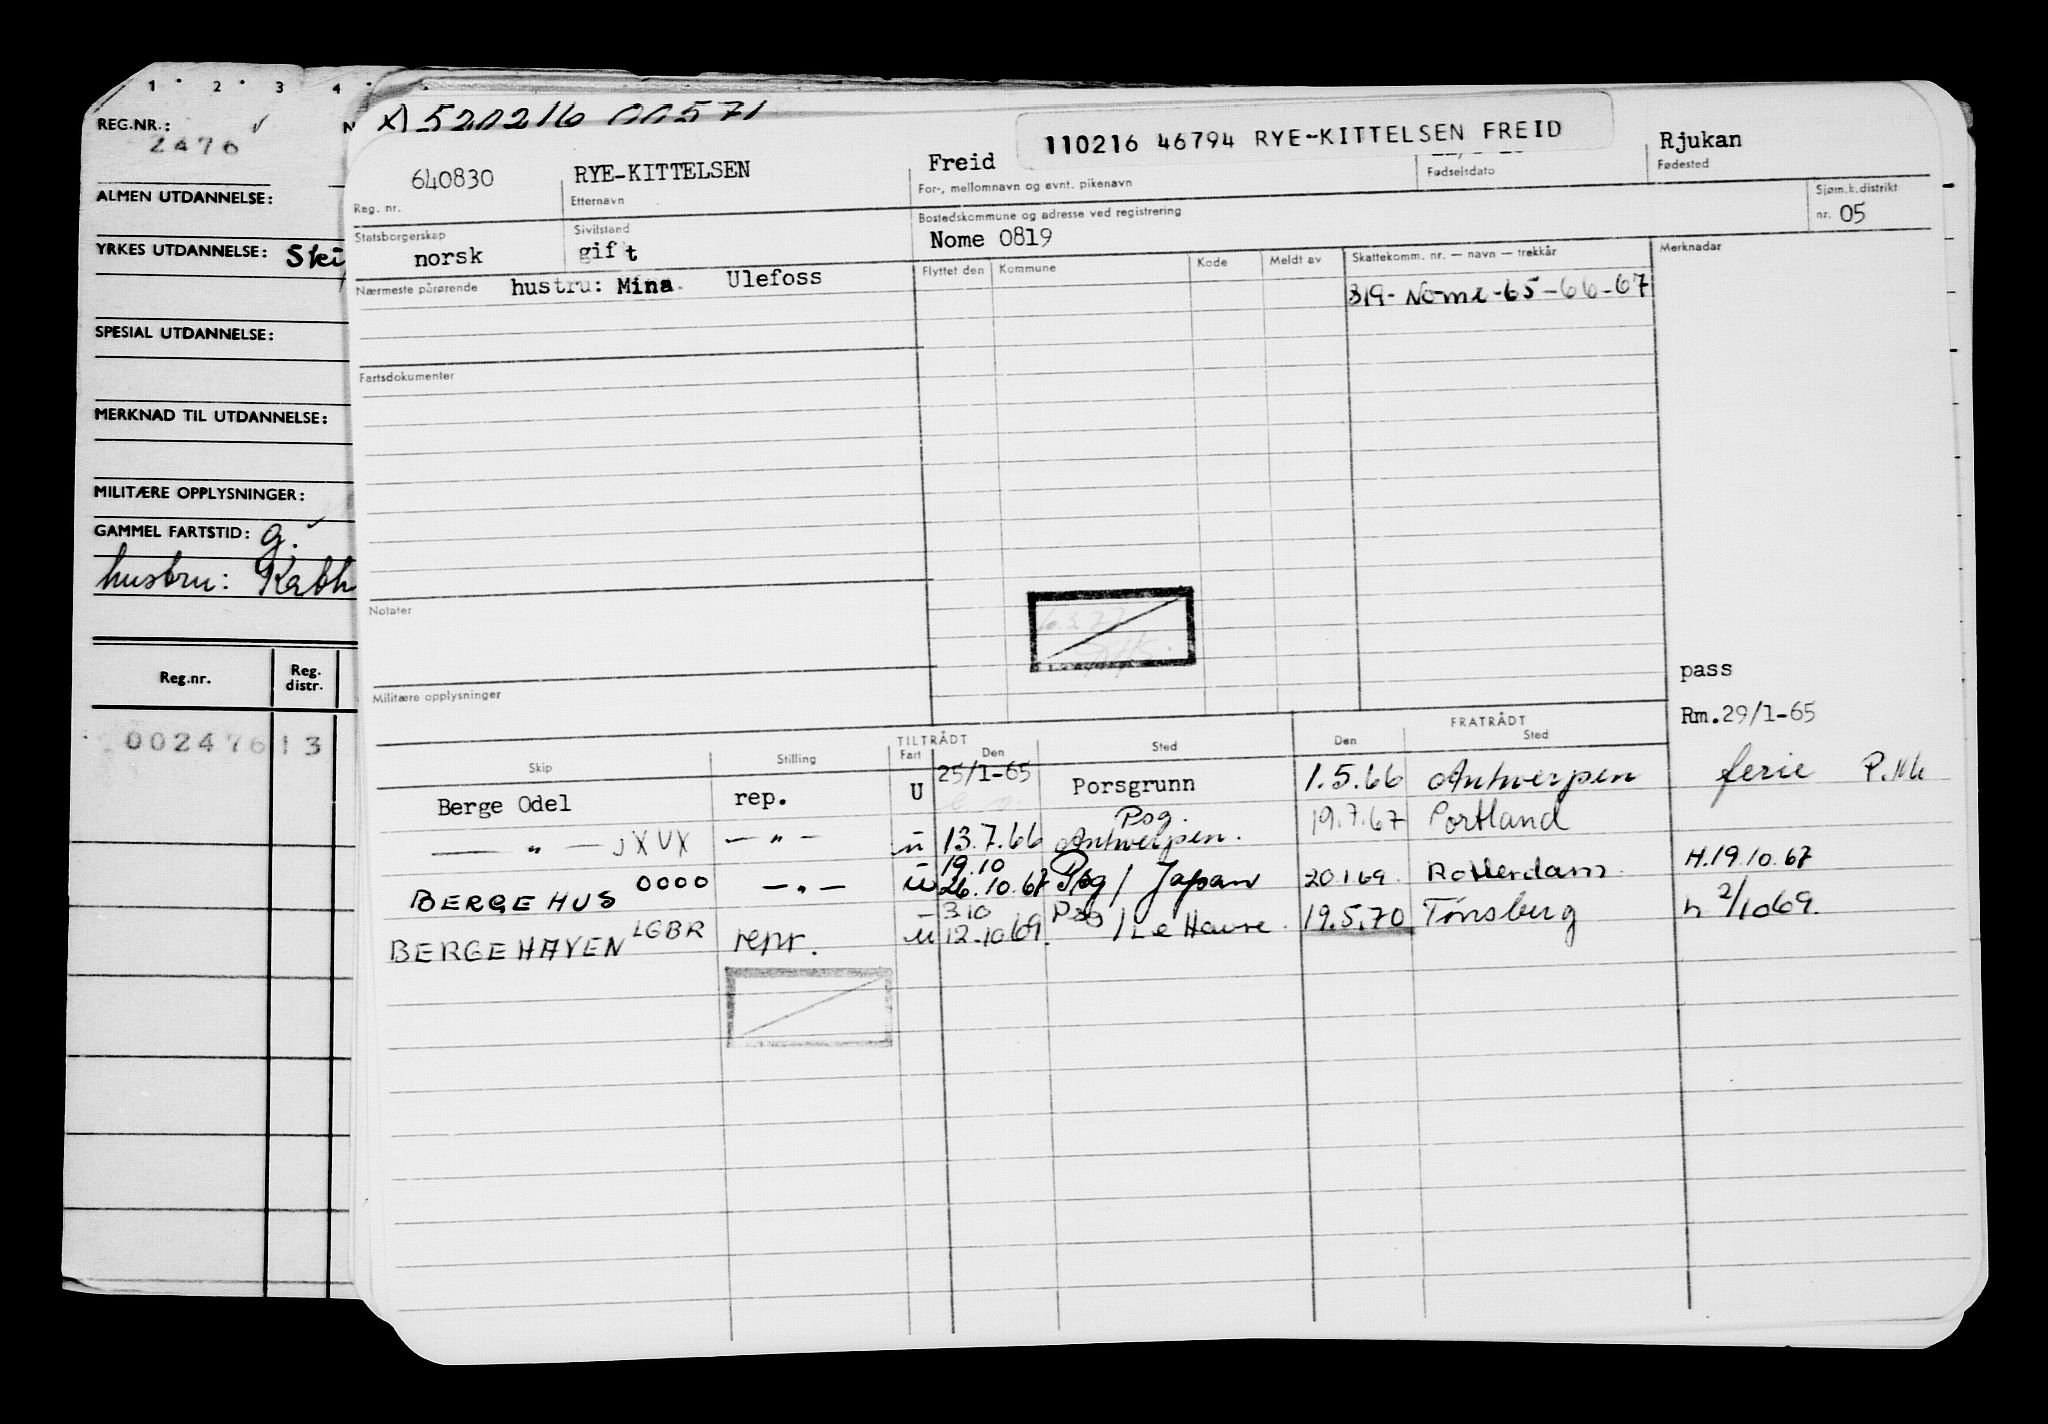 1 2 3 4
REG.NR.:
2476
ALMEN UTDANNELSE:
YRKES UTDANNELSE:
SPESIAL UTDANNELSE:
MERKNAD TIL UTDANNELSE:
MILITÆRE OPPLYSNINGER:
GAMMEL FARTSTID: g.
hustru: Kath
Reg.nr. Reg. distr.
002476 13
110216 46794 RYE-KITTELSEN FREID
640830 RYE-KITTELSEN Freid Rjukan
Reg. nr. Etternavn For-, mellomnavn og evnt. pikenavn Fødselsdato Fødested
Statsborgerskap Sivilstand Bostedskommune og adresse ved registrering Sjøm.k.distrikt
norsk gift Nome 0819 nr. 05
Nærmeste pårørende hustru: Mina. Ulefoss Flyttet den Kommune Kode Meldt av Skattekomm. nr. — navn — trekkår Merknader
319- Nome-65-66-67
Fartsdokumenter
Notater
Militære opplysninger
pass
Rm.29/1-65
TILTRÅDT FRATRÅDT
Skip Stilling Fart Den Sted Den Sted
Berge Odel rep. U 25/1-65 Porsgrunn 1.5.66 Antwerpen ferie
— " — JXUX — " — u 13.7.66 Psg. Antwerpen. 19.7.67 Portland
BERGEHUS OOOO — " — u 19.10 26.10.67 Psg / Japan 20.1.69. Rotterdam. H.19.10.67
BERGEHAVEN LGBR repr. u 3.10 12.10.69. Psg / Le Havre. 19.5.70 Tønsberg h 2/10 69.